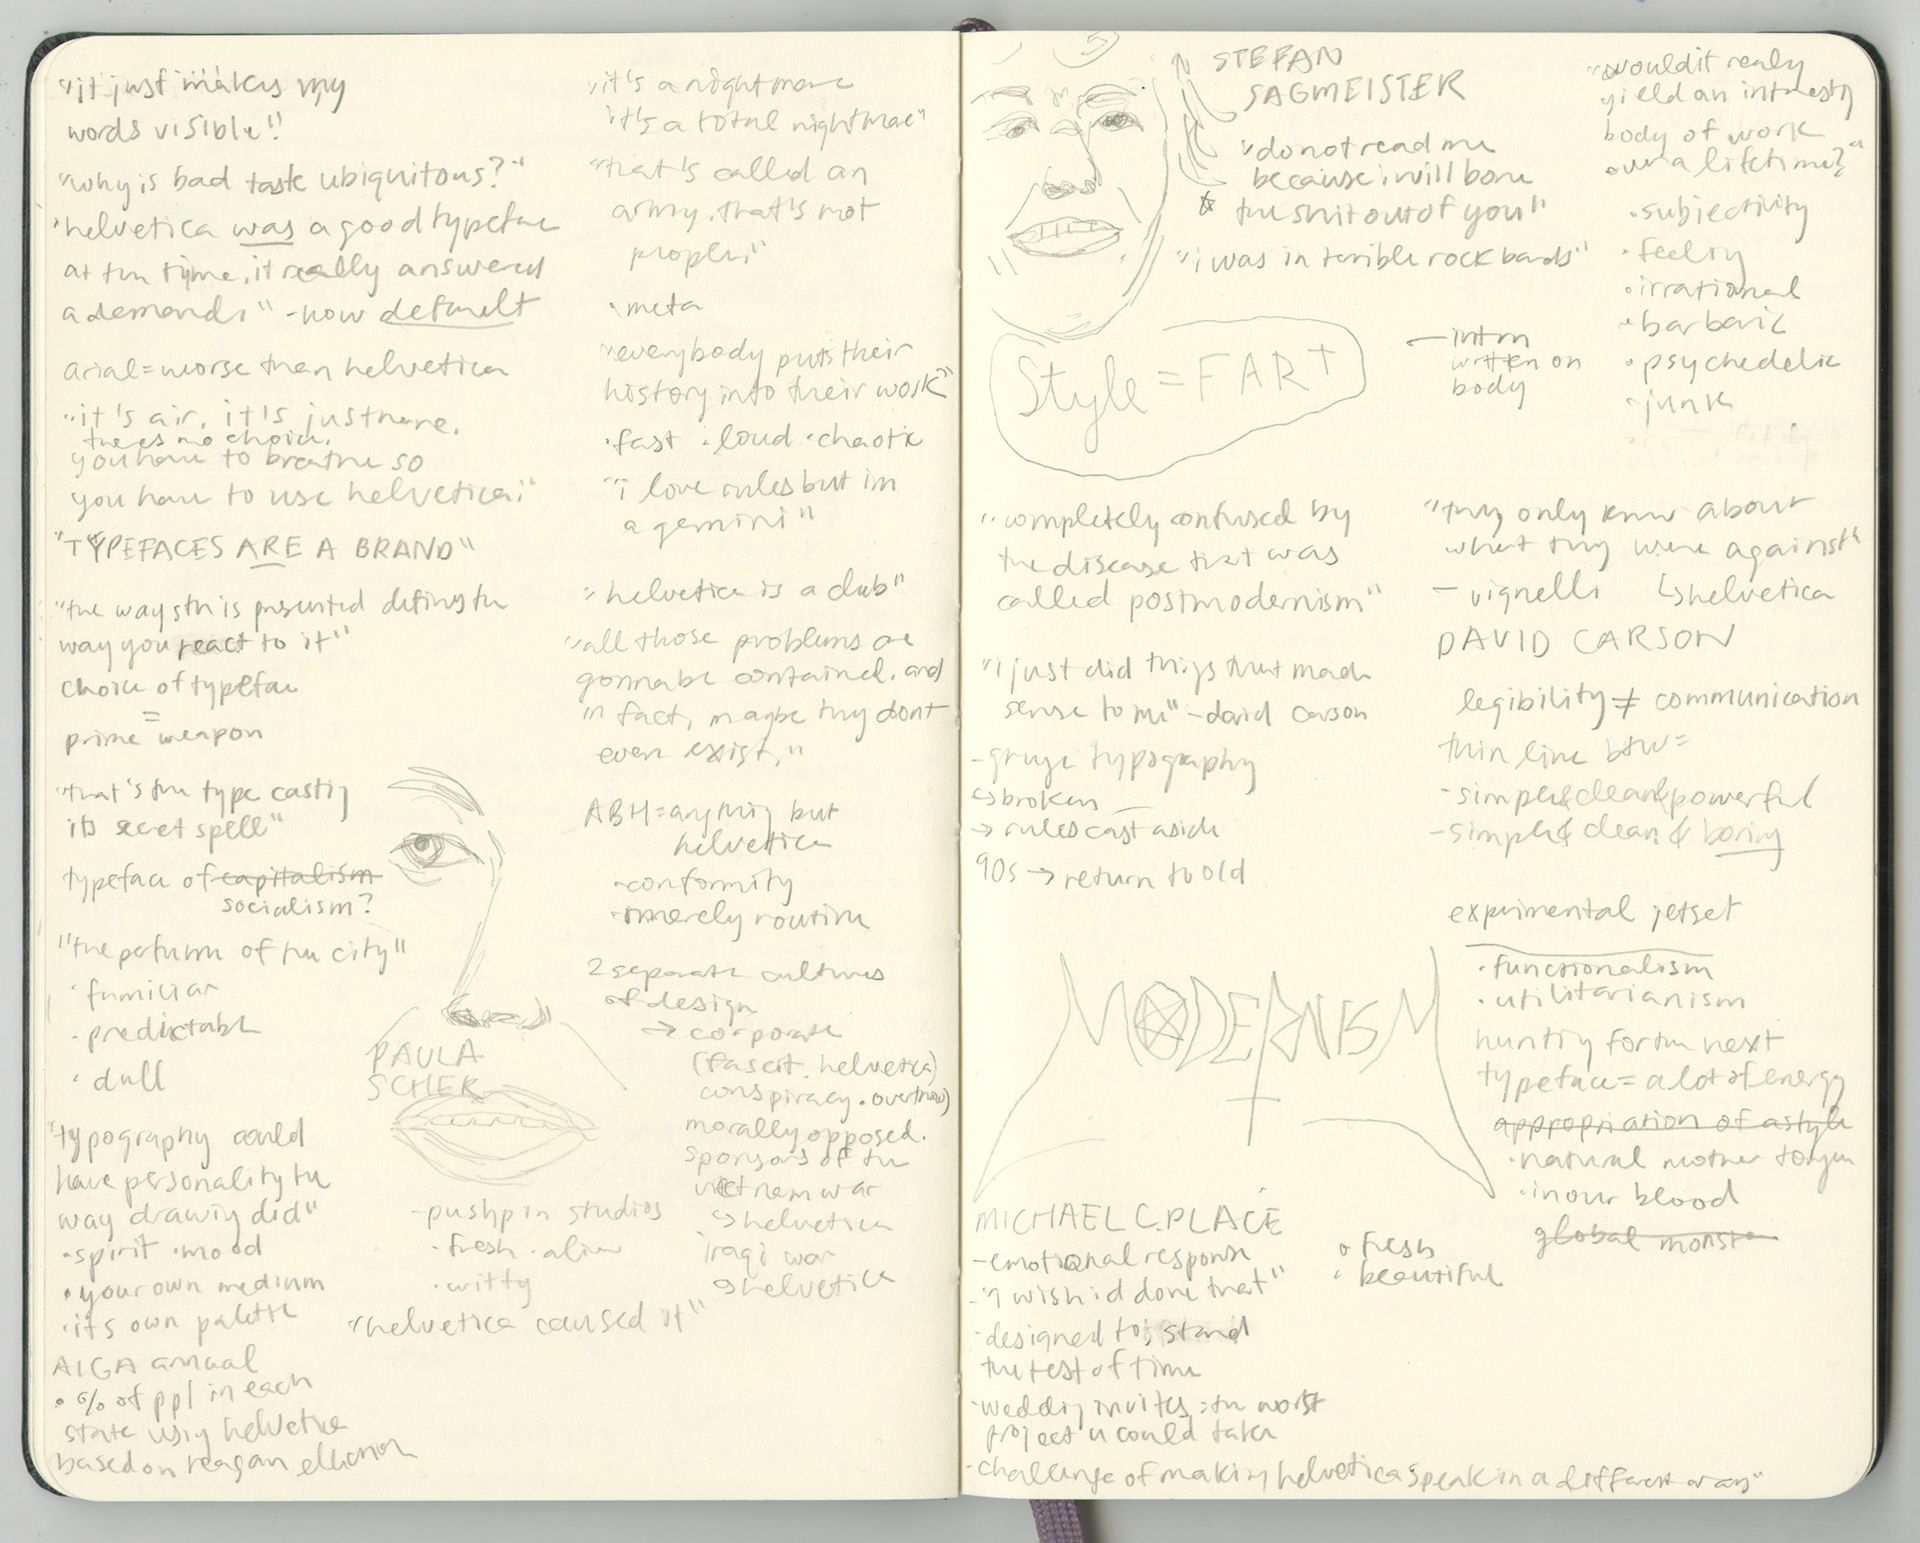 "it just makes my
words visible"
"why is bad taste ubiquitous?"
"helvetica was a good typeface
at the time, it really answered
a demand." - now default
arial = worse than helvetica
"it's air, it's just there.
theres no choice.
you have to breathe so
you have to use helvetica."
"TYPEFACES ARE A BRAND"
"the way sth is presented defines the
way you react to it"
choice of typeface
=
prime weapon
"that's the type casting
its secret spell"
typeface of capitalism
socialism?
"the perfume of the city"
· familiar
· predictable
· dull
"typography could
have personality the
way drawing did"
· spirit · mood
· your own medium
· it's own palette
AIGA annual
· % of ppl in each
state using helvetica
based on reagan election
PAULA
SCHER
- pushpin studios
· fresh · alive
· witty
"helvetica caused it"
"it's a nightmare
it's a total nightmare"
"that's called an
army. that's not
people."
· meta
"everybody puts their
history into their work"
· fast · loud · chaotic
"i love rules but im
a gemini"
"helvetica is a club"
"all those problems are
gonna be contained. and
in fact, maybe they dont
even exist."
ABH = anything but
helvetica
· conformity
· merely routine
2 separate cultures
of design
→ corporate
(fascit. helvetica)
conspiracy · overthrow)
morally opposed.
sponsors of the
vietnam war
↳ helvetica
iraqi war
↳ helvetica
STEFAN
SAGMEISTER
"do not read me
because i will bore
☆ the shit out of you"
"i was in terrible rock bands"
Style = FART
— intrn
written on
body
"would it really
yield an interesting
body of work
over a lifetime?"
· subjectivity
· feeling
· irrational
· barbaric
· psychedelic
· junk
"completely confused by
the disease that was
called postmodernism"
"i just did things that made
sense to me" - david carson
- grunge typography
↳ broken —
→ rules cast aside
90s → return to old
"they only knew about
what they were against"
— vignelli ↳ helvetica
DAVID CARSON
legibility ≠ communication
thin line btw =
- simple & clean & powerful
- simple & clean & boring
experimental jetset
· functionalism
· utilitarianism
hunting for the next
typeface = a lot of energy
appropriation of a style
· natural mother tongue
· in our blood
global monster
MODERNISM
MICHAEL C. PLACE
- emotional response
- "i wish i'd done that"
- designed to stand
the test of time
- wedding invites = the worst
project u could take
- challenge of making helvetica "speak in a different way"
· fresh
· beautiful